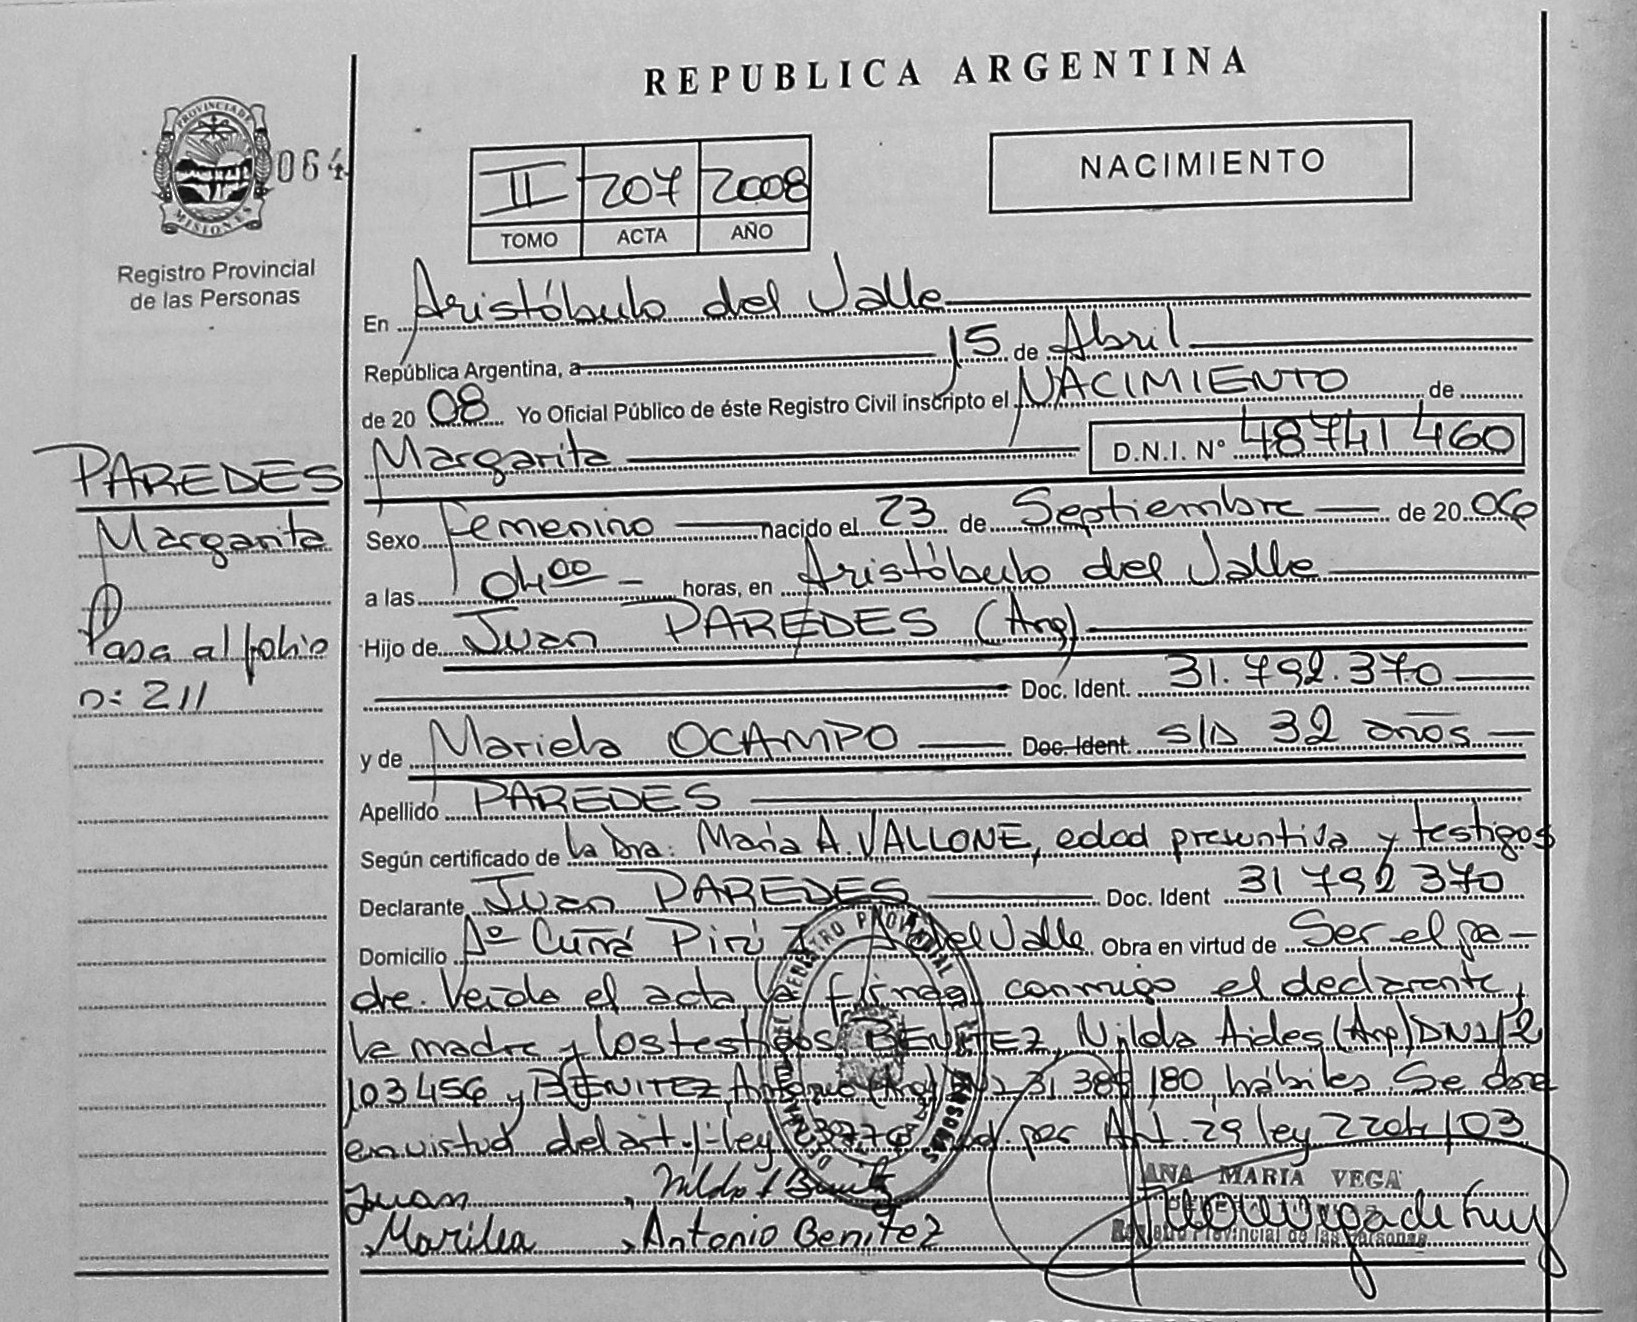 REPUBLICA ARGENTINA
PROVINCIA DE
MISIONES
064
Registro Provincial
de las Personas
II 207 2008
TOMO ACTA AÑO
NACIMIENTO
En Aristóbulo del Valle
República Argentina, a 15 de Abril
de 2008 Yo Oficial Público de éste Registro Civil inscripto el NACIMIENTO de
Margarita D.N.I. Nº 48741460
PAREDES
Margarita
Pasa al folio
n: 211
Sexo Femenino nacido el 23 de Septiembre de 2006
a las 04 00 horas, en Aristóbulo del Valle
Hijo de Juan PAREDES (Arg)
Doc. Ident. 31.792.370
y de Mariela OCAMPO Doc. Ident. S/D 32 años
Apellido PAREDES
Según certificado de la Dra: Maria A. VALLONE, edad presuntiva y testigos
Declarante Juan PAREDES Doc. Ident 31 792 370
Domicilio Aº Cuñá Pirú del Valle Obra en virtud de Ser el pa-
dre. Leida el acta, la firman conmigo el declarante,
la madre y los testigos BENITEZ, Nilda Aides (Arg) DNI
103 456 y BENITEZ, Antonio (Arg) 31 385 180, hábiles. Se
en virtud del art. 1- ley por Art. 29 ley 2204/03
Juan, Nilda A Benitez
Marilea, Antonio Benitez
ANA MARIA VEGA
Registro Provincial de las Personas